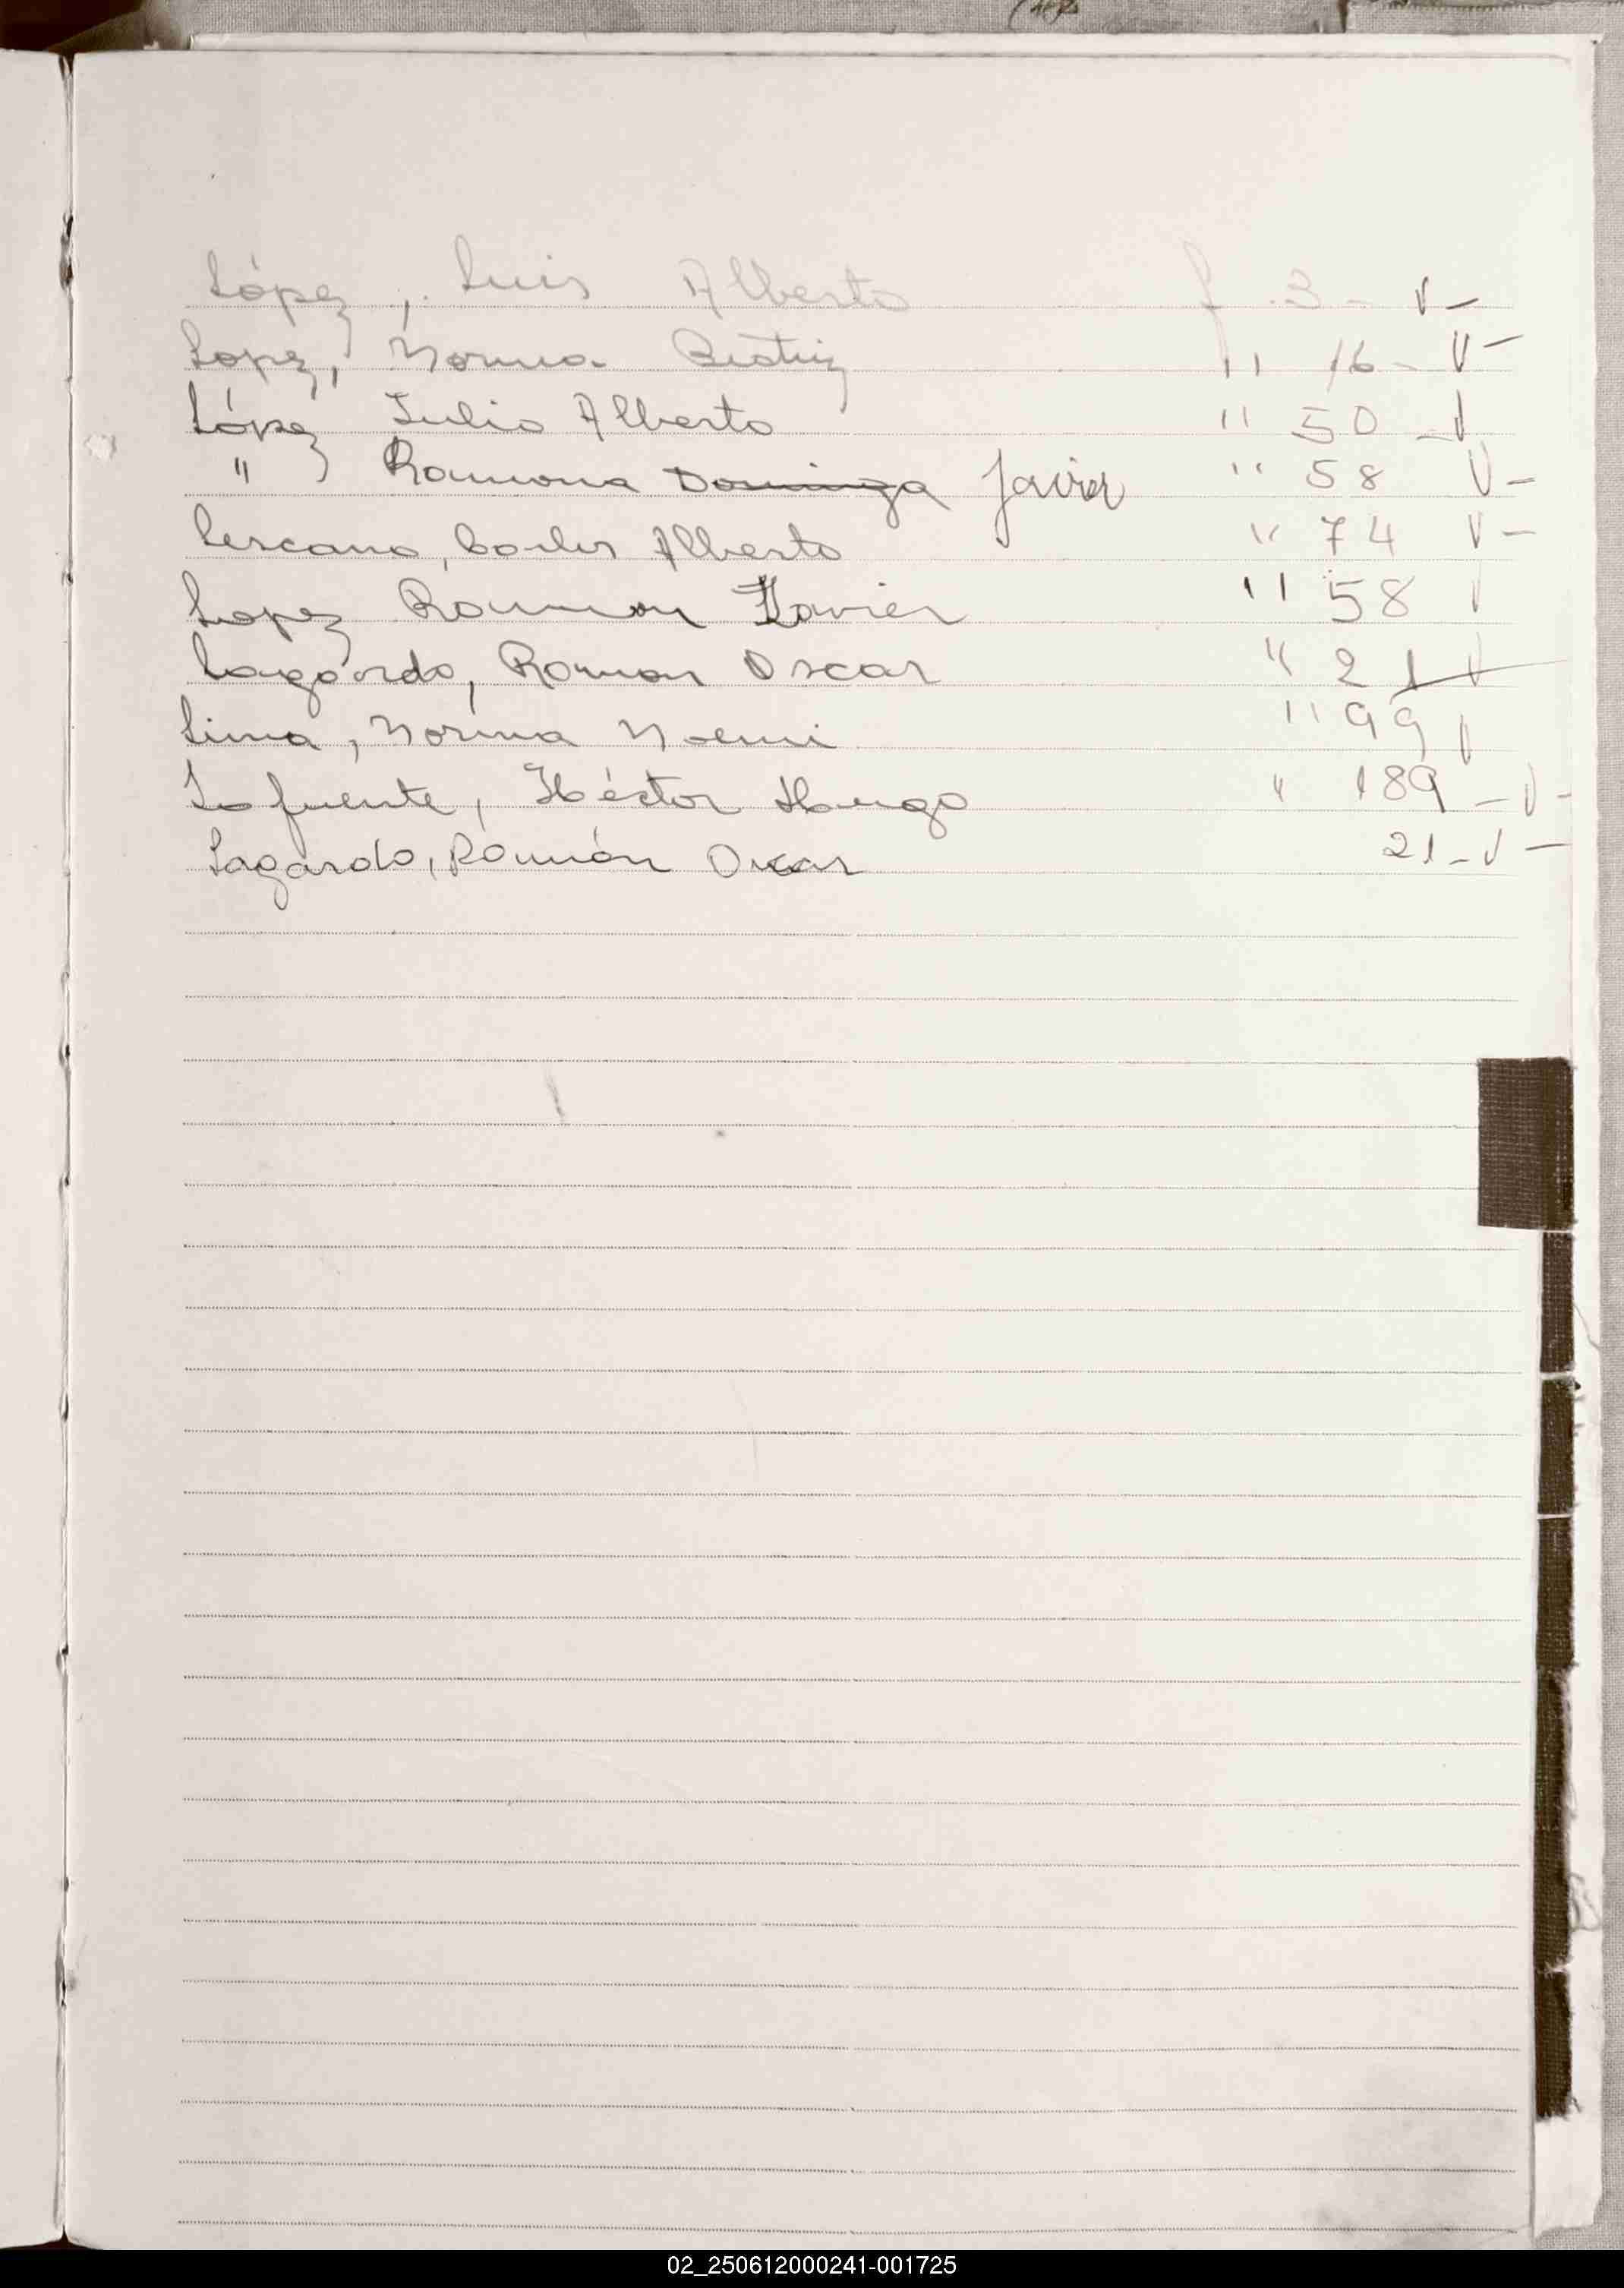 López, Luis Alberto f. 3 - V -
Lopez, Norma Beatriz " 16 - V -
López Julio Alberto " 50 - V
" Ramona Dominga Javier " 58 V -
Lescano, Carlos Alberto " 74 V -
Lopez Ramon Xavier " 58 V
Lagardo, Roman Oscar " 21 V
Lima, Norma Noemi " 99 V
Lafuente, Héctor Hugo " 189 - V -
Lagardo, Román Oscar 21 - V -
02_250612000241-001725